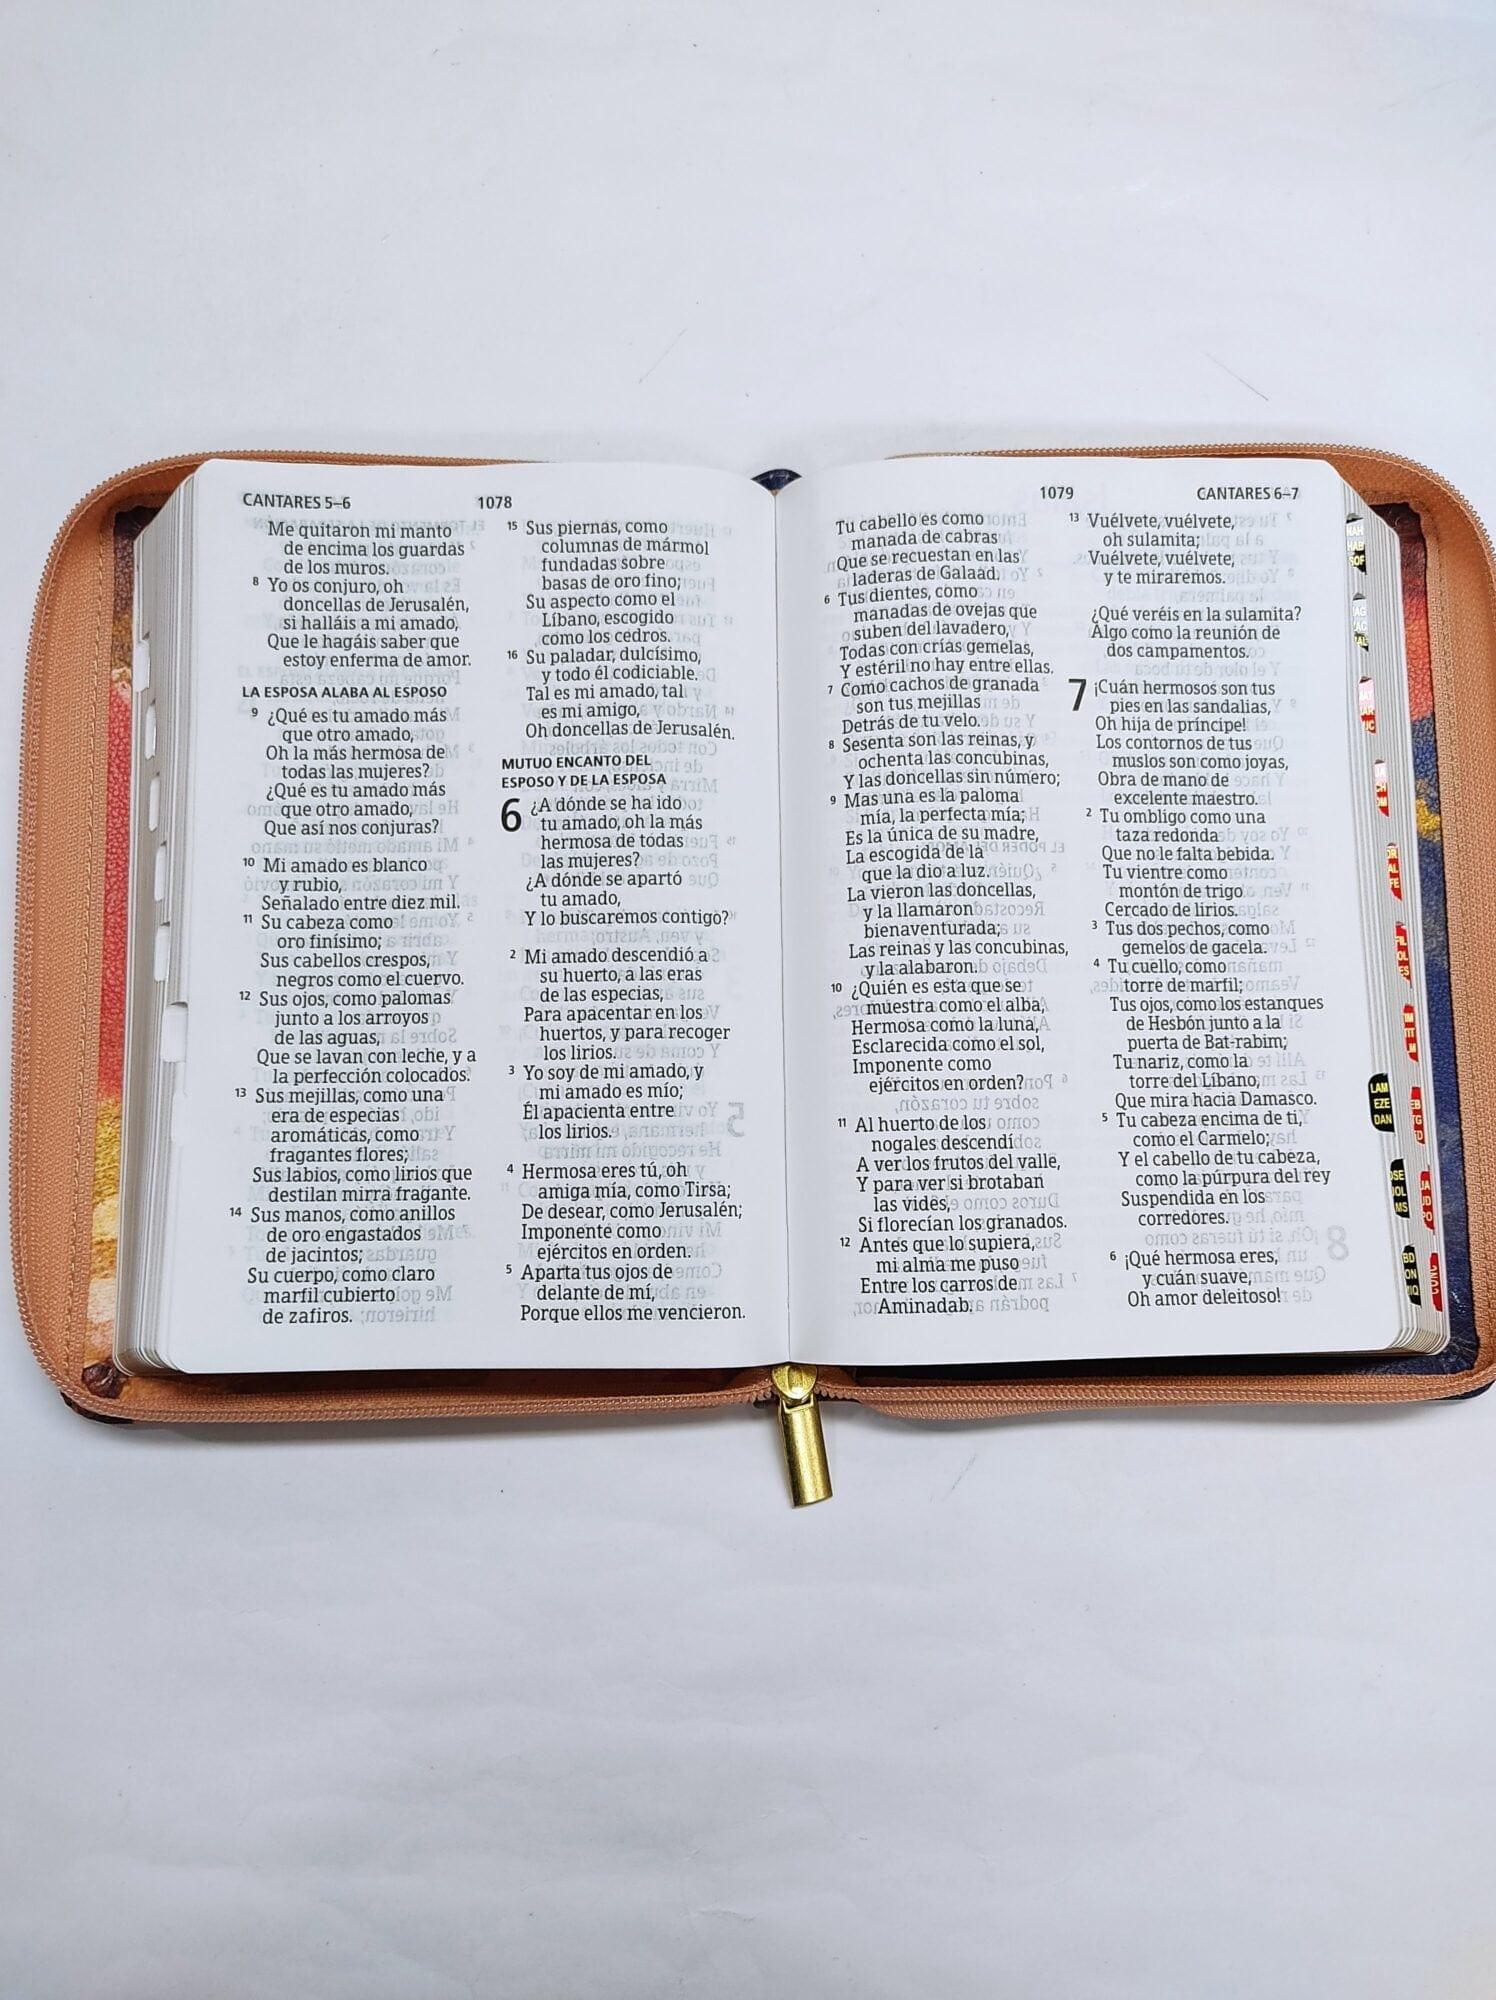 CANTARES 5–6
1078
Me quitaron mi manto
de encima los guardas
de los muros.
8 Yo os conjuro, oh
doncellas de Jerusalén,
si halláis a mi amado,
Que le hagáis saber que
estoy enferma de amor.
LA ESPOSA ALABA AL ESPOSO
9 ¿Qué es tu amado más
que otro amado,
Oh la más hermosa de
todas las mujeres?
¿Qué es tu amado más
que otro amado,
Que así nos conjuras?
10 Mi amado es blanco
y rubio,
Señalado entre diez mil.
11 Su cabeza como
oro finísimo;
Sus cabellos crespos,
negros como el cuervo.
12 Sus ojos, como palomas
junto a los arroyos
de las aguas,
Que se lavan con leche, y a
la perfección colocados.
13 Sus mejillas, como una
era de especias
aromáticas, como
fragantes flores;
Sus labios, como lirios que
destilan mirra fragante.
14 Sus manos, como anillos
de oro engastados
de jacintos;
Su cuerpo, como claro
marfil cubierto
de zafiros.
15 Sus piernas, como
columnas de mármol
fundadas sobre
basas de oro fino;
Su aspecto como el
Líbano, escogido
como los cedros.
16 Su paladar, dulcísimo,
y todo él codiciable.
Tal es mi amado, tal
es mi amigo,
Oh doncellas de Jerusalén.
MUTUO ENCANTO DEL
ESPOSO Y DE LA ESPOSA
6 ¿A dónde se ha ido
tu amado, oh la más
hermosa de todas
las mujeres?
¿A dónde se apartó
tu amado,
Y lo buscaremos contigo?
2 Mi amado descendió a
su huerto, a las eras
de las especias,
Para apacentar en los
huertos, y para recoger
los lirios.
3 Yo soy de mi amado, y
mi amado es mío;
Él apacienta entre
los lirios.
4 Hermosa eres tú, oh
amiga mía, como Tirsa;
De desear, como Jerusalén;
Imponente como
ejércitos en orden.
5 Aparta tus ojos de
delante de mí,
Porque ellos me vencieron.
1079
CANTARES 6–7
Tu cabello es como
manada de cabras
Que se recuestan en las
laderas de Galaad.
6 Tus dientes, como
manadas de ovejas que
suben del lavadero,
Todas con crías gemelas,
Y estéril no hay entre ellas.
7 Como cachos de granada
son tus mejillas
Detrás de tu velo.
8 Sesenta son las reinas, y
ochenta las concubinas,
Y las doncellas sin número;
9 Mas una es la paloma
mía, la perfecta mía;
Es la única de su madre,
La escogida de la
que la dio a luz.
La vieron las doncellas,
y la llamaron
bienaventurada;
Las reinas y las concubinas,
y la alabaron.
10 ¿Quién es esta que se
muestra como el alba,
Hermosa como la luna,
Esclarecida como el sol,
Imponente como
ejércitos en orden?
11 Al huerto de los
nogales descendí
A ver los frutos del valle,
Y para ver si brotaban
las vides,
Si florecían los granados.
12 Antes que lo supiera,
mi alma me puso
Entre los carros de
Aminadab.
13 Vuélvete, vuélvete,
oh sulamita;
Vuélvete, vuélvete,
y te miraremos.
¿Qué veréis en la sulamita?
Algo como la reunión de
dos campamentos.
7 ¡Cuán hermosos son tus
pies en las sandalias,
Oh hija de príncipe!
Los contornos de tus
muslos son como joyas,
Obra de mano de
excelente maestro.
2 Tu ombligo como una
taza redonda
Que no le falta bebida.
Tu vientre como
montón de trigo
Cercado de lirios.
3 Tus dos pechos, como
gemelos de gacela.
4 Tu cuello, como
torre de marfil;
Tus ojos, como los estanques
de Hesbón junto a la
puerta de Bat-rabim;
Tu nariz, como la
torre del Líbano,
Que mira hacia Damasco.
5 Tu cabeza encima de ti,
como el Carmelo;
Y el cabello de tu cabeza,
como la púrpura del rey
Suspendida en los
corredores.
6 ¡Qué hermosa eres,
y cuán suave,
Oh amor deleitoso!
LAM
EZE
DAN